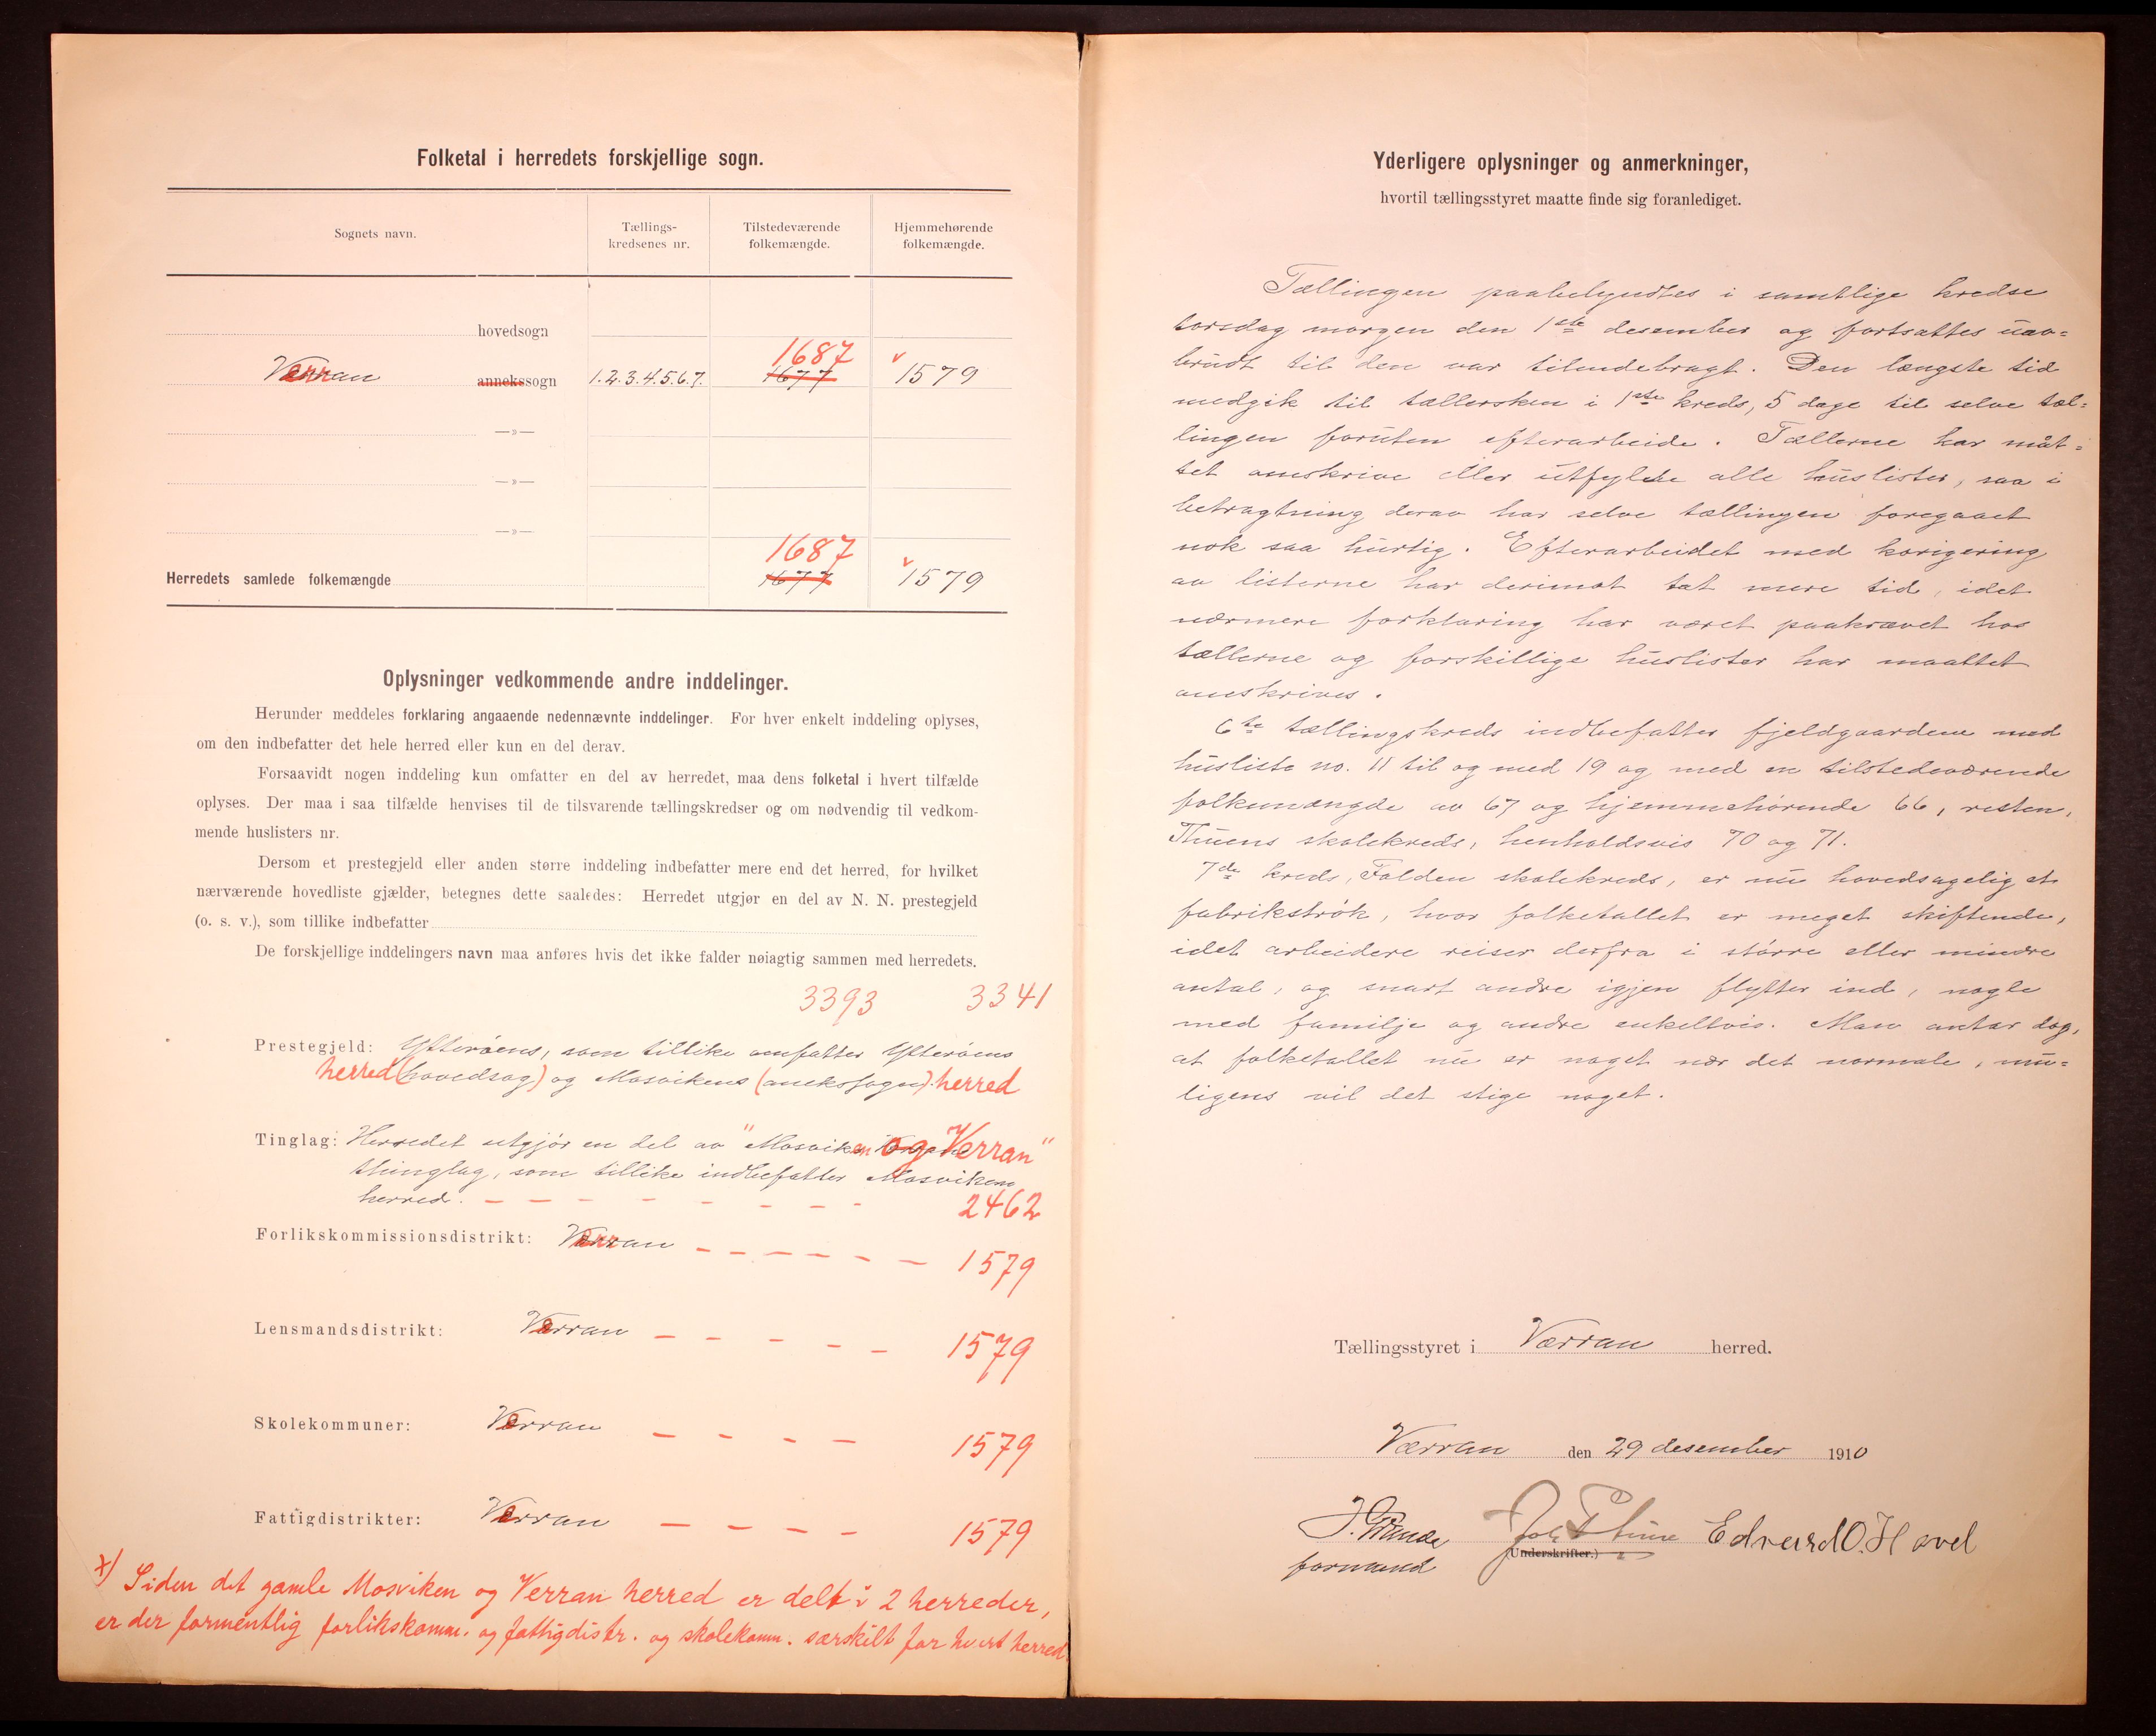 Folketal i herredets forskjellige sogn.
Sognets navn.
Tællings-
kredsenes nr.
Tilstedeværende
folkemængde.
Hjemmehørende
folkemængde.
hovedsogn
1687
Verran annekssogn 1.2.3.4.5.6.7. 1677 v 1579
—»—
—»—
—»—
1687
Herredets samlede folkemængde 1677 v 1579
Oplysninger vedkommende andre inddelinger.
Herunder meddeles forklaring angaaende nedennævnte inddelinger. For hver enkelt inddeling oplyses,
om den indbefatter det hele herred eller kun en del derav.
Forsaavidt nogen inddeling kun omfatter en del av herredet, maa dens folketal i hvert tilfælde
oplyses. Der maa i saa tilfælde henvises til de tilsvarende tællingskredser og om nødvendig til vedkom-
mende huslisters nr.
Dersom et prestegjeld eller anden større inddeling indbefatter mere end det herred, for hvilket
nærværende hovedliste gjælder, betegnes dette saaledes: Herredet utgjør en del av N. N. prestegjeld
(o. s. v.), som tillike indbefatter
De forskjellige inddelingers navn maa anføres hvis det ikke falder nøiagtig sammen med herredets.
3393 3341
Prestegjeld: Ytterøens, som tillike omfatter Ytterøens
herred (hovedsog) og Mosvikens (anekssogn). herred
Tinglag: Herredet utgjør en del av "Mosviken og Verran"
thinglag, som tillike indbefatter Mosvikens
herred. — — — — — — — 2462
Forlikskommissionsdistrikt: Verran — — — — — — — 1579
Lensmandsdistrikt: Verran — — — — — 1579
Skolekommuner: Verran — — — — 1579
Fattigdistrikter: Verran — — — — 1579
x) Siden det gamle Mosviken og Verran herred er delt i 2 herreder,
er der formentlig forlikskomm. og fattigdistr. og skolekomm. særskilt for hvert herred.
Yderligere oplysninger og anmerkninger,
hvortil tællingsstyret maatte finde sig foranlediget.
Tællingen paabelyndtes i samtlige kredse
torsdag morgen den 1ste desember og fortsattes uav=
brudt til den var tilendebragt. Den længste tid
medgik til tællersken i 1ste kreds, 5 dage til selve tæl=
lingen foruten efterarbeide. Tællerne har måt=
tet omskrive eller utfylde alle huslister, saa i
betragtning derav har selve tællingen foregaaet
nok saa hurtig. Efterarbeidet med korigering
av listerne har derimot tat mere tid, idet
nærmere forklaring har været paakrævet hos
tællerne og forskillige huslister har maattet
omskrives.
6te tællingskreds indbefatter fjeldgaardene med
husliste no. 11 til og med 19 og med en tilstedeværende
folkemængde av 67 og hjemmehørende 66, resten,
Thuens skolekreds, henholdsvis 70 og 71.
7de kreds, Folden skolekreds, er nu hovedsagelig et
fabrikstrøk, hvor folketallet er meget skiftende,
idet arbeidere reiser derfra i større eller mindre
antal, og snart andre igjen flytter ind, nogle
med familje og andre enkeltvis. Man antar dog,
at folketallet nu er noget nær det normale, mu=
ligens vil det stige noget.
Tællingsstyret i Værran herred.
Værran den 29 desember 1910
J. Grande Joh. Thune Edvard O. Havel
(Underskrifter.)
formand